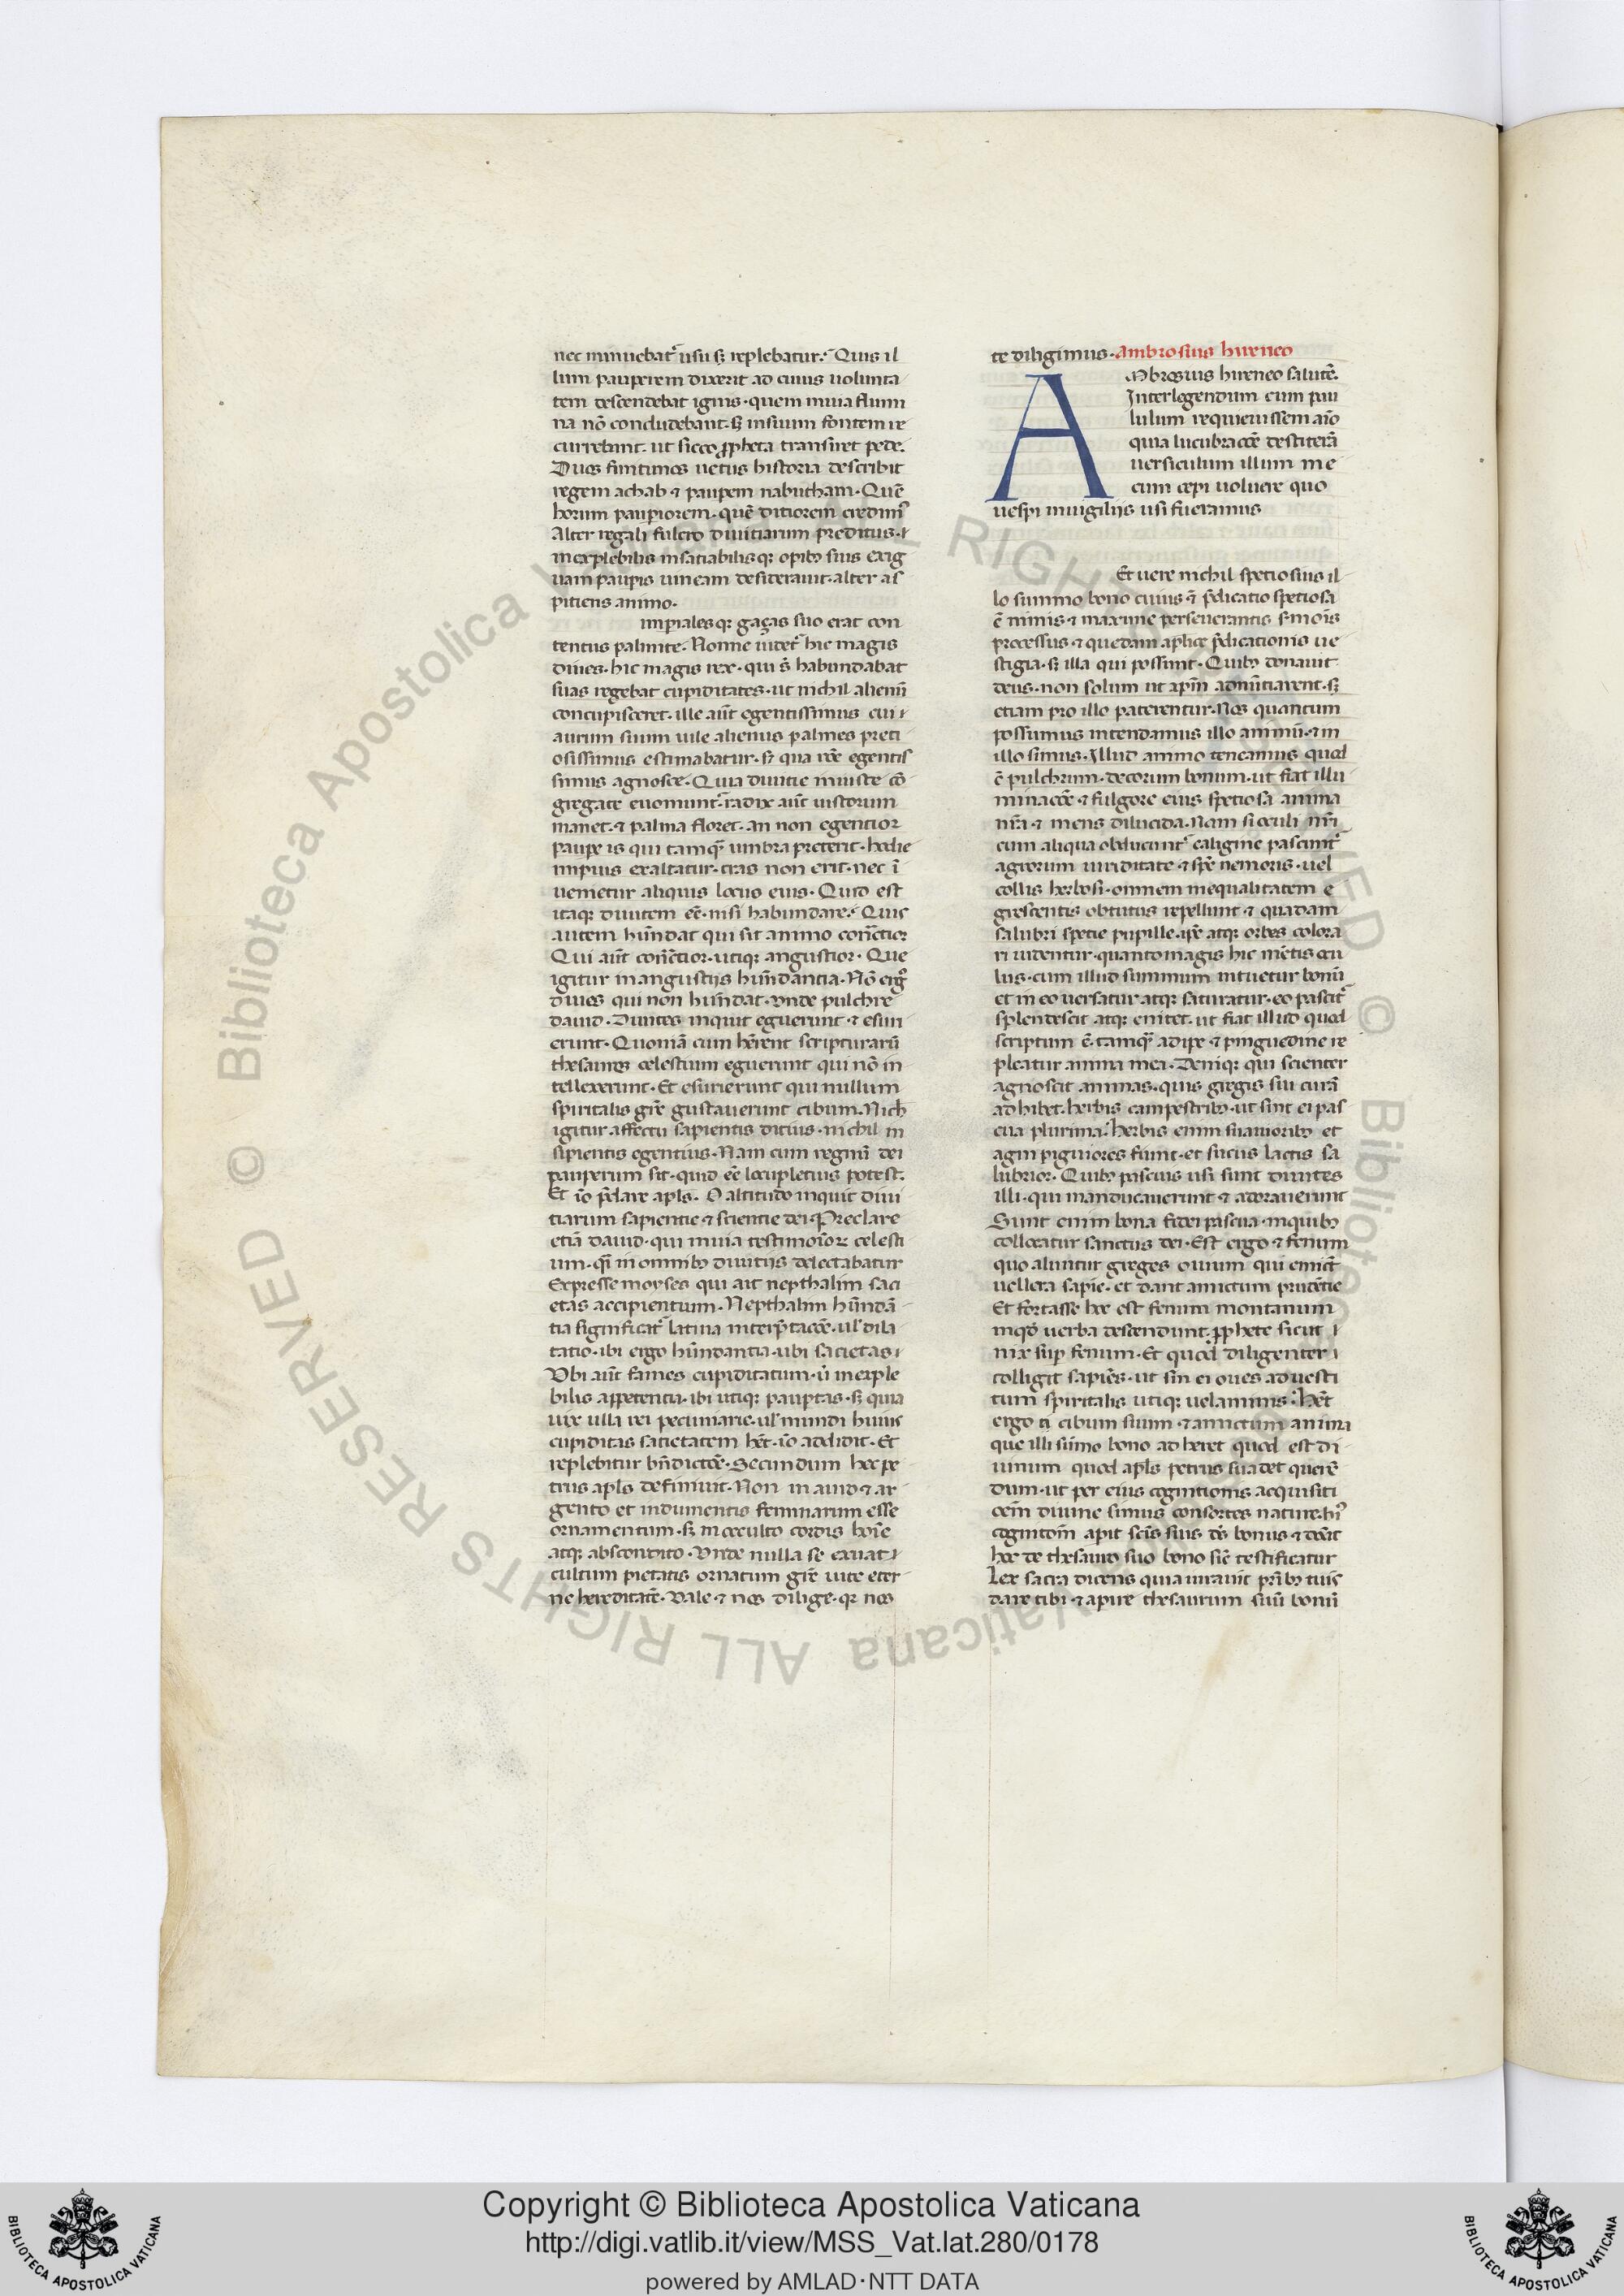 nec minuebat᷑ usu sꝫ replebatur. Quis il
lum pauperem dixerit ad cuius uolunta
tem descendebat ignis. quem inuia flumi
na nō concludebant. sꝫ insuum fontem re
currebant. ut sicco ꝓpheta transiret pede.
Duos finitimos uetus historia describit
regem achab ⁊ paupem nabutham. Quē
horum paupiorem. quē ditiorem credimꝰ
Alter regali fulcro diuitiarum preditus.
inexplebilis insatiabilisqꝫ opibꝫ suis exig
uam paupis uineam desiderauit. alter as
pitiens animo.
imperialesqꝫ gaças suo erat con
tentus palmite. Nonne uidet᷑ hic magis
diues. hic magis rex. qui s̄ habundabat
suas regebat cupiditates. ut nichil alienū
concupisceret. ille aūt egentissimus cui
aurum suum uile alienus palmes preti
osissimus estimabatur. sꝫ qua rōe egentis
simus agnosce. Quia diuitie iniuste cō
gregate euomunt᷑. radix aūt iustorum
manet. ⁊ palma floret. an non egentior
paupe is qui tamqꝫ umbra preterit. hodie
impius exaltatur. cras non erit. nec ī
uenietur aliquis locus eius. Quid est
itaqꝫ diuitem eē. nisi habundare. Quis
autem hūndat qui sit animo contctior
Qui aūt contctior. utiqꝫ angustior. Que
igitur in angustijs hūndantia. Nō ergͦ
diues qui non hūndat. Vnde pulchre
dauid. Diuites inquit eguerunt ⁊ esuri
erunt. Quoniā cum hērent scripturarū
thesauros celestium eguerunt qui nō in
tellexerunt. Et esurierunt qui nullum
spiritalis grē gustauerunt cibum. Nich
igitur affectu sapientis ditius. nichil in
sipientis egentius. Nam cum regnū dei
pauperum sit. quid eē locupletius potest.
Et iō p̄clare apls. O altitudo inquit diui
tiarum sapientie ⁊ scientie dei. Preclare
etiā dauid. qui inuia testimoniorꝫ celesti
um. qͣi in omnibꝫ diuitijs delectabatur
Expresse moyses qui ait nepthalim saci
etas accipientium. Nepthalim hūndā
tia significat᷑ latina interp̄tacōe. ul' dila
tatio. ibi ergo hūndantia. ubi sacietas.
Vbi aūt fames cupiditatum. ⁊ inexple
bilis appetentia. ibi utiqꝫ paupertas. sꝫ quia
uix ulla rei pecuniarie. ul' mundi huius
cupiditas satietatem hēt. iō addidit. Et
replebitur bn̄dictōe. Secundum hec pe
trus apls definiuit. Non in auro ⁊ ar
gento et indumentis feminarum esse
ornamentum. sꝫ in occulto cordis hoīe
atqꝫ abscondito. Vnde nulla se exuat
cultum pietatis ornatum grē uite eter
ne hereditatē. Vale ⁊ nos dilige. qꝫ nos
te diligimus. Ambrosius hireneo
AMbrosius hireneo salutē.
Interlegendum cum pau
lulum requieuissem aīo
quia lucubracōe destiterā
uersiculum illum me
cum cepi uoluere quo
uespi inuigilijs usi fueramus
Et uere nichil spetiosius il
lo summo bono cuius ē p̄dicatio spetiosa
ē nimis ⁊ maxime perseuerantis s̄monis
processus ⁊ quedam aplice p̄dicationis ue
stigia. sꝫ illa qui possint. Quibꝫ donauit
deus. non solum ut xp̄m adnūtiarent. sꝫ
etiam pro illo paterentur. Nos quantum
possumus intendamus illo animū. ⁊ in
illo simus. Illud animo teneamus quod
ē pulchrum. decorum bonum. ut fiat illu
minacōe ⁊ fulgore eius spetiosa anima
nr̄a ⁊ mens dilucida. Nam si oculi nr̄i
cum aliqua obducunt᷑ caligine pascunt᷑
agrorum uiriditate ⁊ spē nemoris. uel
collis herbosi. omnem inequalitatem e
grescentis obtutus repellunt ⁊ quadam
salubri spetie pupille. ip̄e atqꝫ orbes colora
ri uidentur. quanto magis hic mētis ocu
lus. cum illud summum intuetur bonū
et in eo uersatur atqꝫ saturatur. eo pascit᷑
splendescit atqꝫ enitet. ut fiat illud quod
scriptum ē. tamqꝫ adipe ⁊ pinguedine re
pleatur anima mea. Deniqꝫ qui scienter
agnoscit animas. quis gregis sui curā
adhibet. herbis campestribꝫ. ut sint ei pas
cua plurima. herbis enim suauioribꝫ et
agni piguiores fiunt. et sucus lactis sa
lubrior. Quibꝫ pascuis usi sunt diuites
illi. qui manducauerunt ⁊ adorauerunt
Sunt enim bona fidei pascua. inquibꝫ
collocatur sanctus dei. Est ergo ⁊ fenum
quo aluntur greges ouium qui emict̄
uellera sapie. et dant amictum prudētie
Et fortasse hoc est fenum montanum
inqͦ uerba descendunt. ꝓphete sicut
nix suꝑ fenum. Et quod diligenter
colligit sapiēs. ut sin ei oues ad uesti
tum spiritalis utiqꝫ uelaminis. hēt
ergo ⁊ cibum suum. ⁊ amictum anima
que illi sūmo bono adheret quod est di
uinum quod apls petrus suadet querē
dum. ut per eius cognitionis acquisiti
oem diuine simus consortes nature. hͥꝰ
cognitoīm apit scūs suis dꝰ bonus ⁊ docet
hoc de thesauro suo bono sic testificatur
Lex sacra dicens quia iurauit pr̄ibꝫ tuis
dare tibi ⁊ apire thesaurum suū bonū
Copyright © Biblioteca Apostolica Vaticana
http://digi.vatlib.it/view/MSS_Vat.lat.280/0178
powered by AMLAD·NTT DATA
BIBLIOTECA APOSTOLICA VATICANA
BIBLIOTECA APOSTOLICA VATICANA
© Biblioteca Apostolica Vaticana ALL RIGHTS RESERVED © Biblioteca Apostolica Vaticana ALL RIGHTS RESERVED